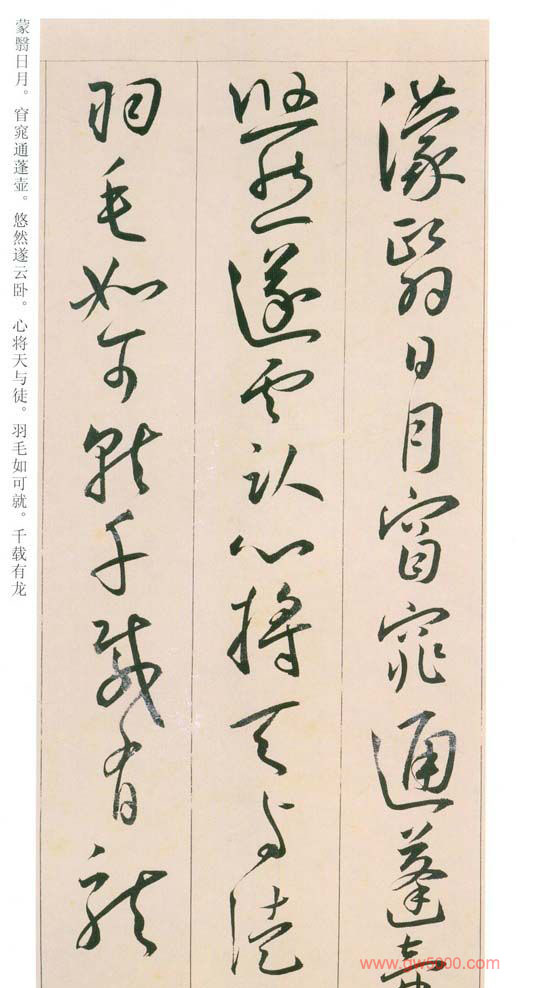 濛翳日月窅窕通蓬壶
悠然遂云卧心将天与徒
羽毛如可就千载有龙
蒙翳日月。窅窕通蓬壶。悠然遂云卧。心将天与徒。羽毛如可就。千载有龙
www.gw5000.com